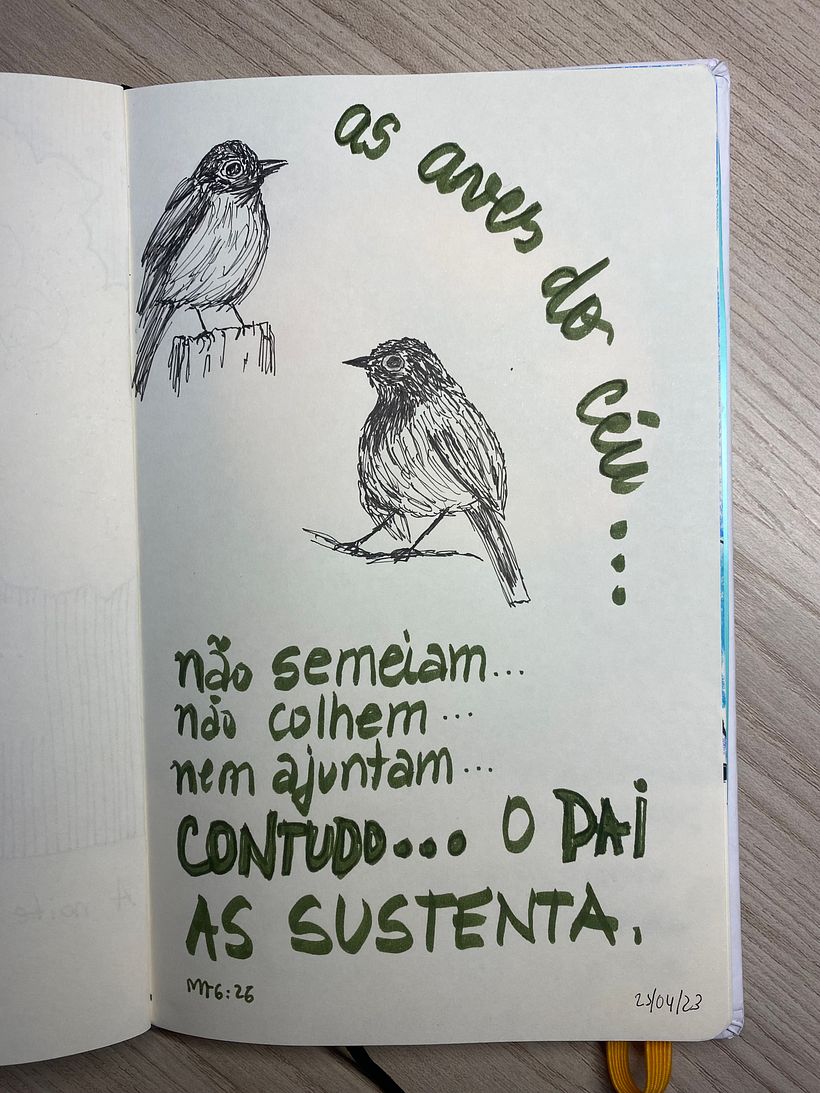 as aves do céu...
não semeiam...
não colhem...
nem ajuntam...
CONTUDO... O PAI
AS SUSTENTA.
MT6:26
25/04/23